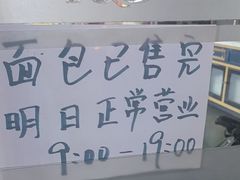 面包已售完
明日正常营业
9:00-19:00